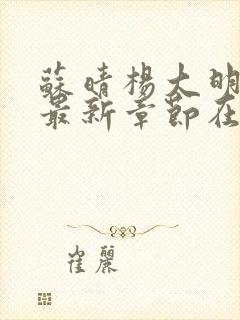 蘇晴楊大明
最新章節在
崔麗